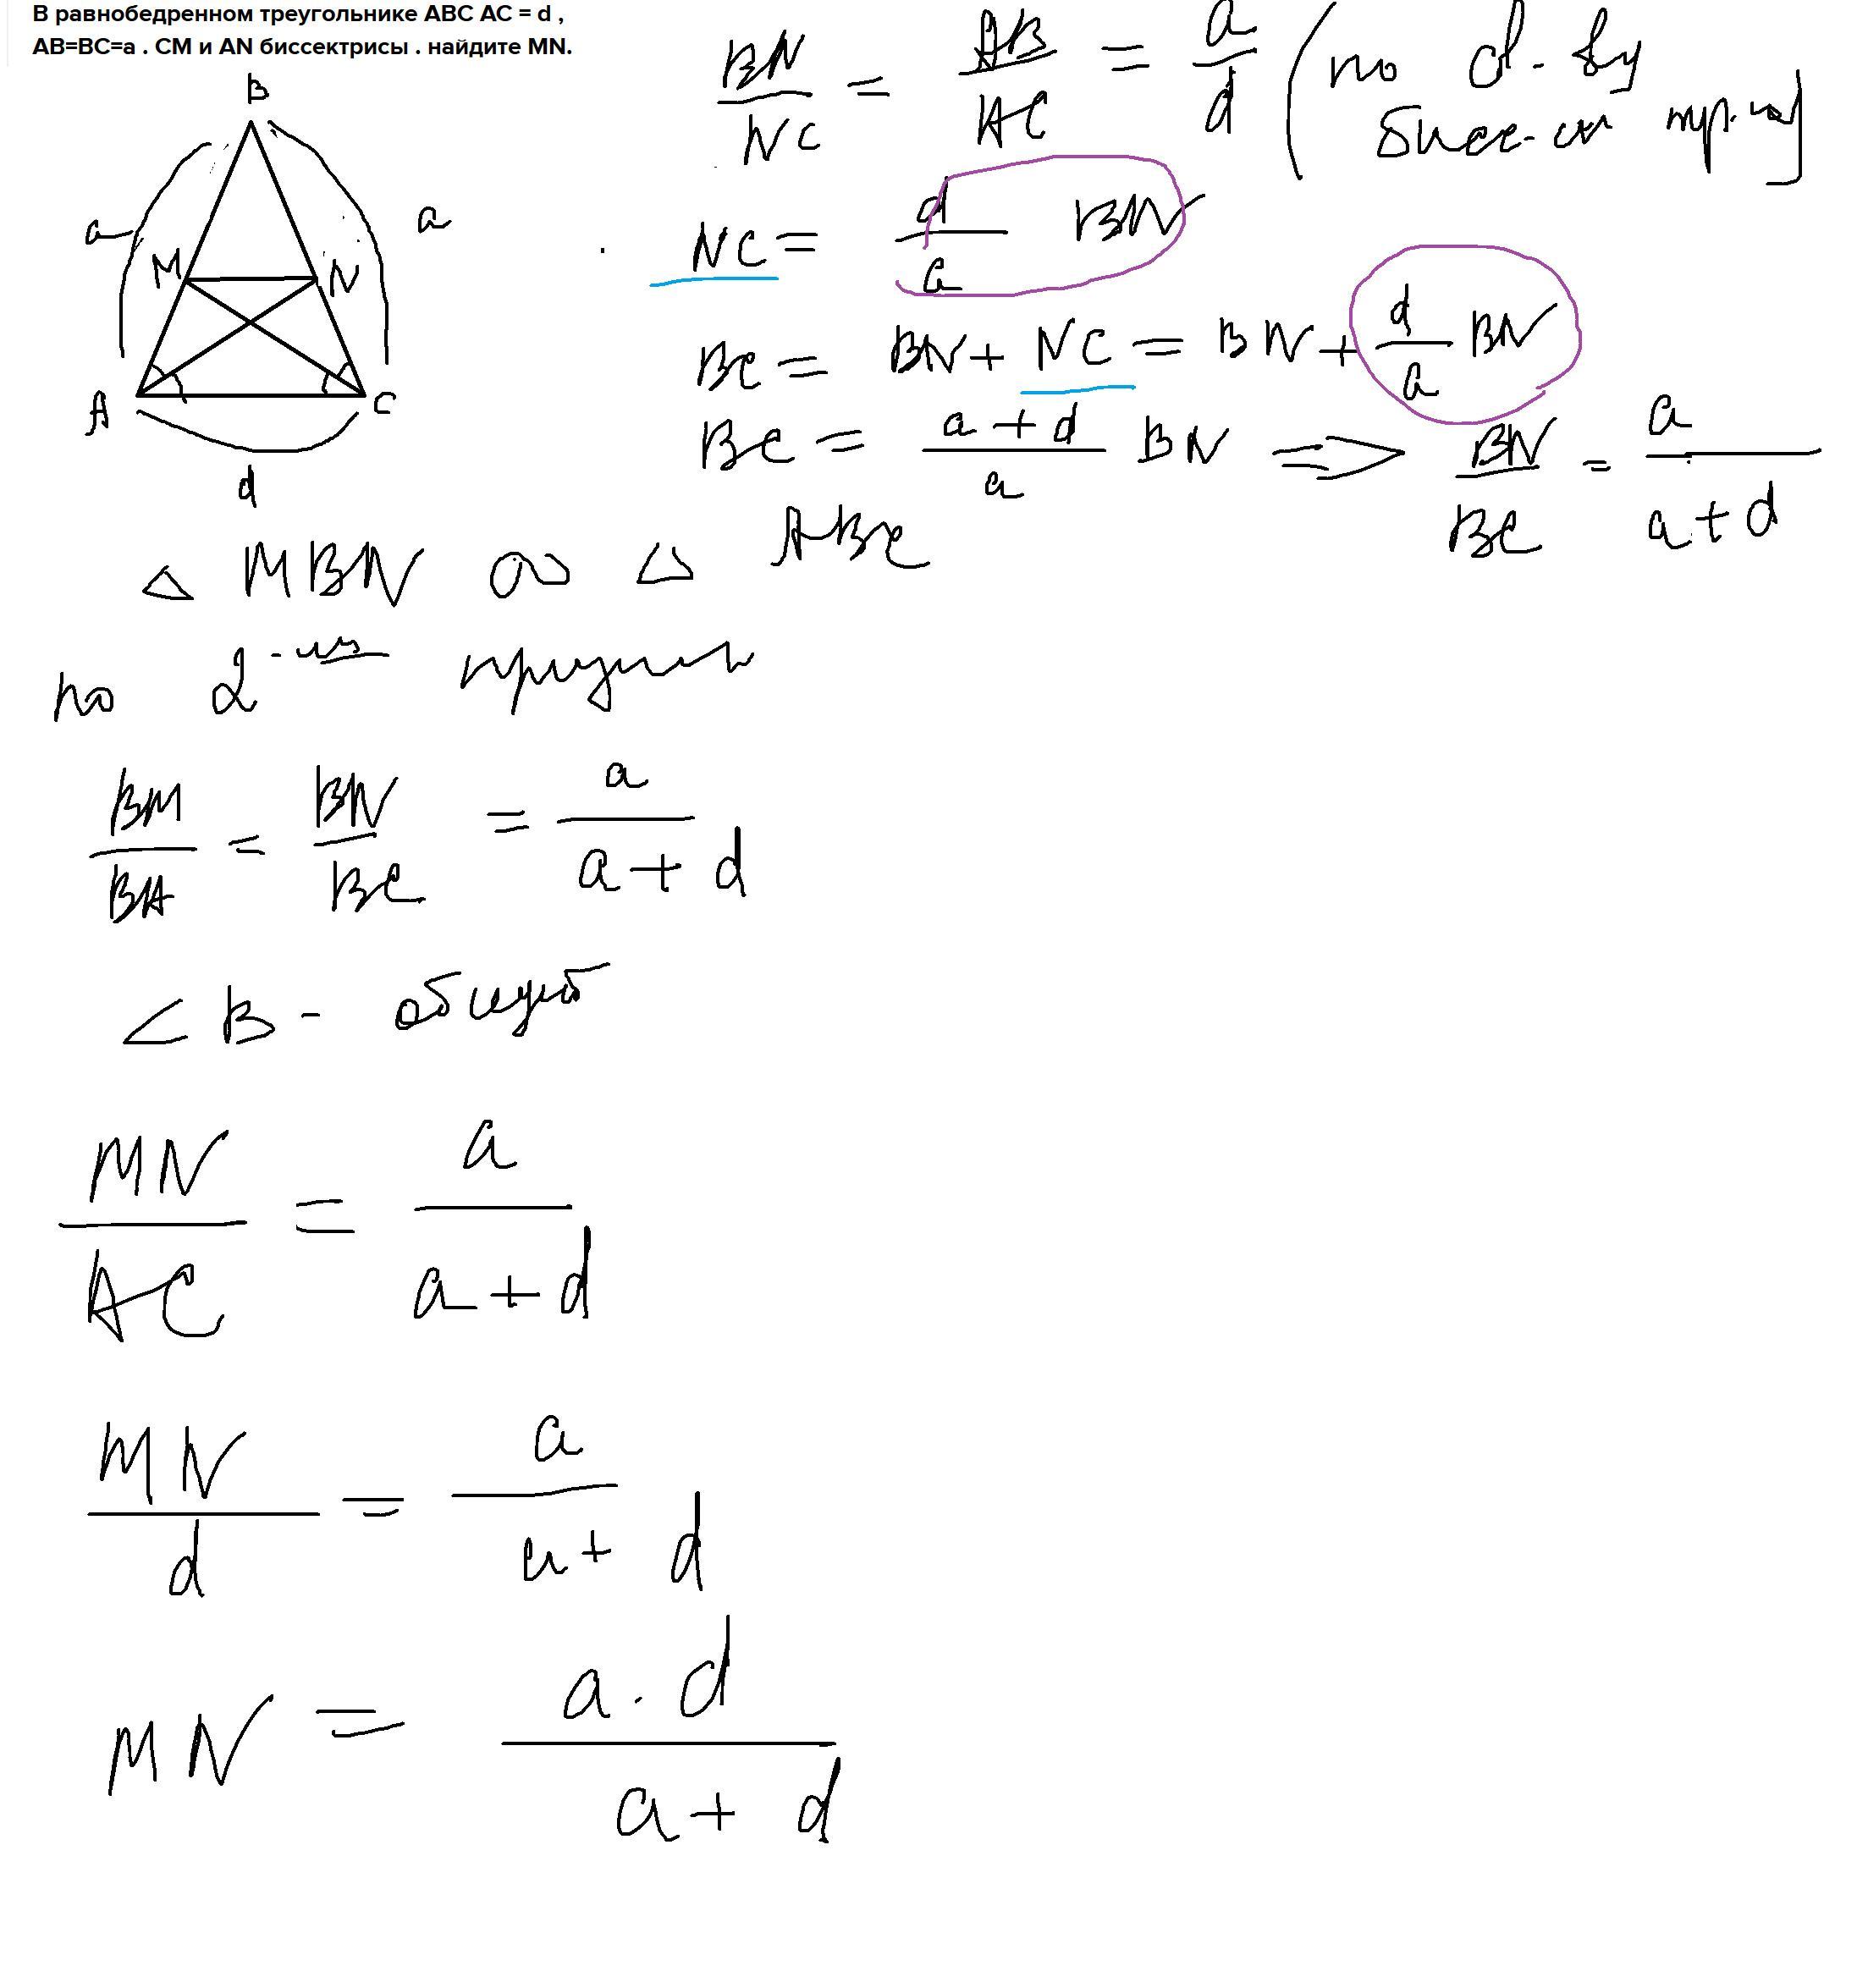 В равнобедренном треугольнике ABC AC = d ,
AB=BC=a . CM и AN биссектрисы . найдите MN.
B
a
a
M
N
A
C
d
BN/NC = AB/AC = a/d (по
NC = d/a BN
BC = BN + NC = BN + d/a BN
BC = (a + d)/a BN ⇒ BN/BC = a/(a + d)
△ MBN ∾ △ ABC
по 2
BM/BA = BN/BC = a/(a + d)
∠ B - общий
MN/AC = a/(a + d)
MN/d = a/(a + d)
MN = a · d/(a + d)